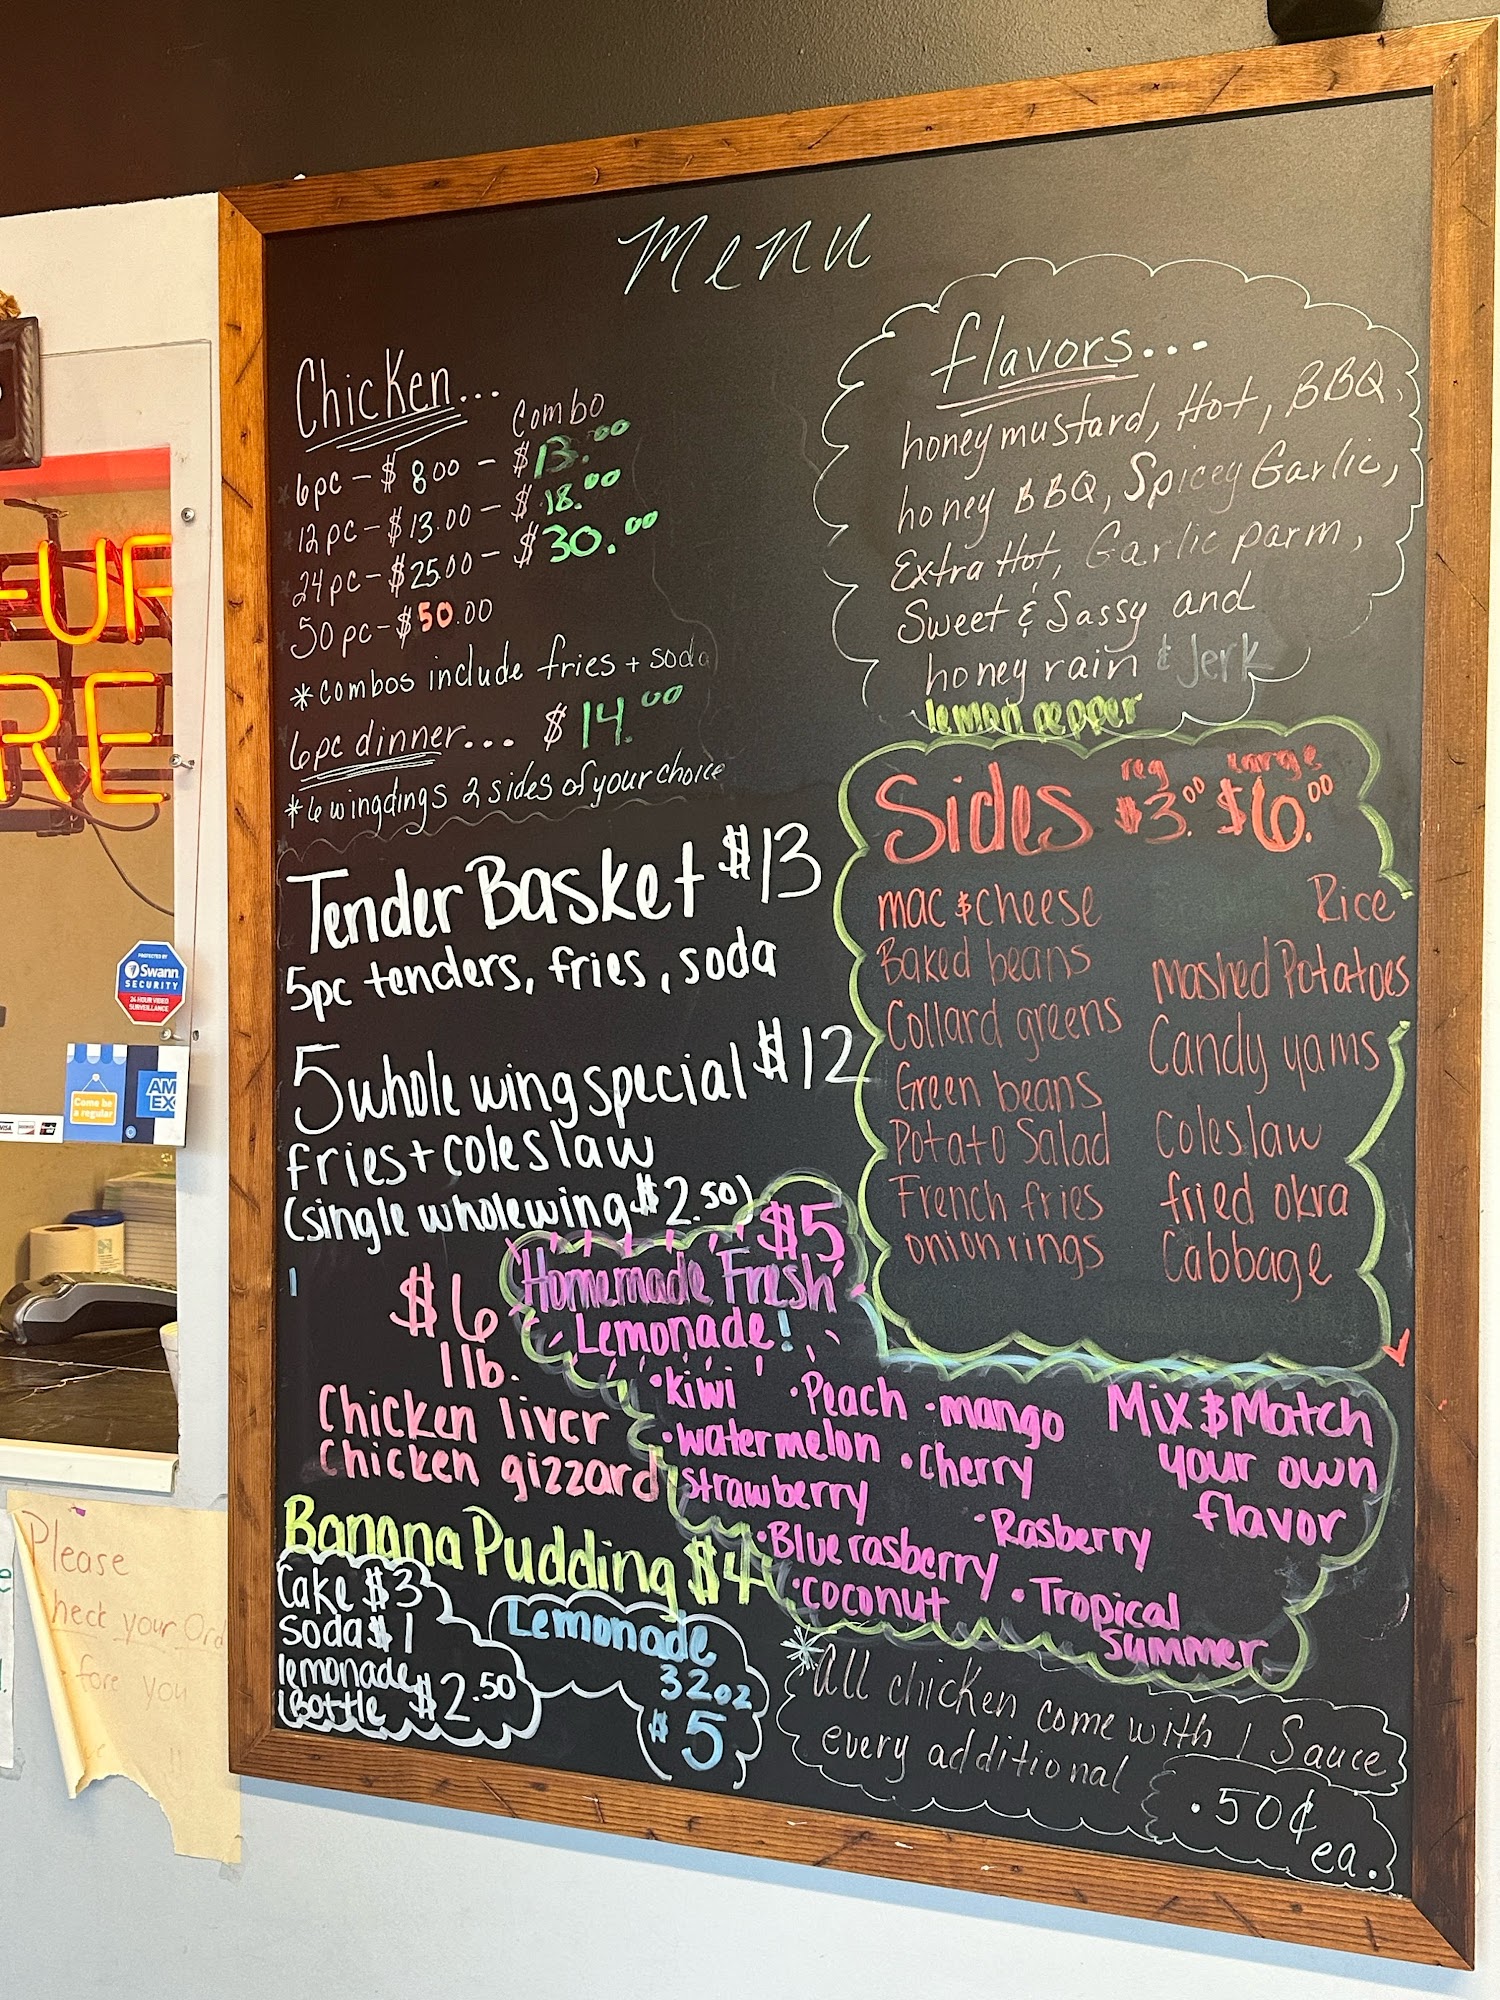 Menu
Chicken...
Combo
6pc - $ 8.00 - $13.00
12pc - $13.00 - $18.00
24pc - $25.00 - $30.00
50pc - $50.00
*Combos include fries + soda
6pc dinner... $14.00
*6 wingdings 2 sides of your choice
Tender Basket $13
5pc tenders, fries, soda
5 whole wing special $12
fries + coleslaw
(single whole wing $2.50)
$6
1lb.
Chicken liver
Chicken gizzard
Banana Pudding $4
Cake $3
Soda $1
lemonade
Bottle $2.50
Lemonade
32oz
$5
flavors...
honey mustard, Hot, BBQ,
honey BBQ, Spicey Garlic,
Extra Hot, Garlic parm,
Sweet & Sassy and
honey rain & Jerk
lemon pepper
Sides reg $3.00 large $6.00
mac & cheese
Baked beans
Collard greens
Green beans
Potato Salad
French fries
onion rings
Rice
Mashed Potatoes
Candy yams
Coleslaw
fried okra
Cabbage
$5
Homemade Fresh
Lemonade!
•kiwi •Peach •mango
•watermelon •Cherry
strawberry
•Rasberry
•Blue rasberry
•coconut •Tropical
summer
Mix & Match
your own
flavor
*All chicken come with 1 Sauce
every additional
.50¢
ea.
PROTECTED BY
Swann
SECURITY
24 HOUR VIDEO
SURVEILLANCE
Come be
a regular
AM
EX
VISA
Please
check your Ord
fore you
UF
RE